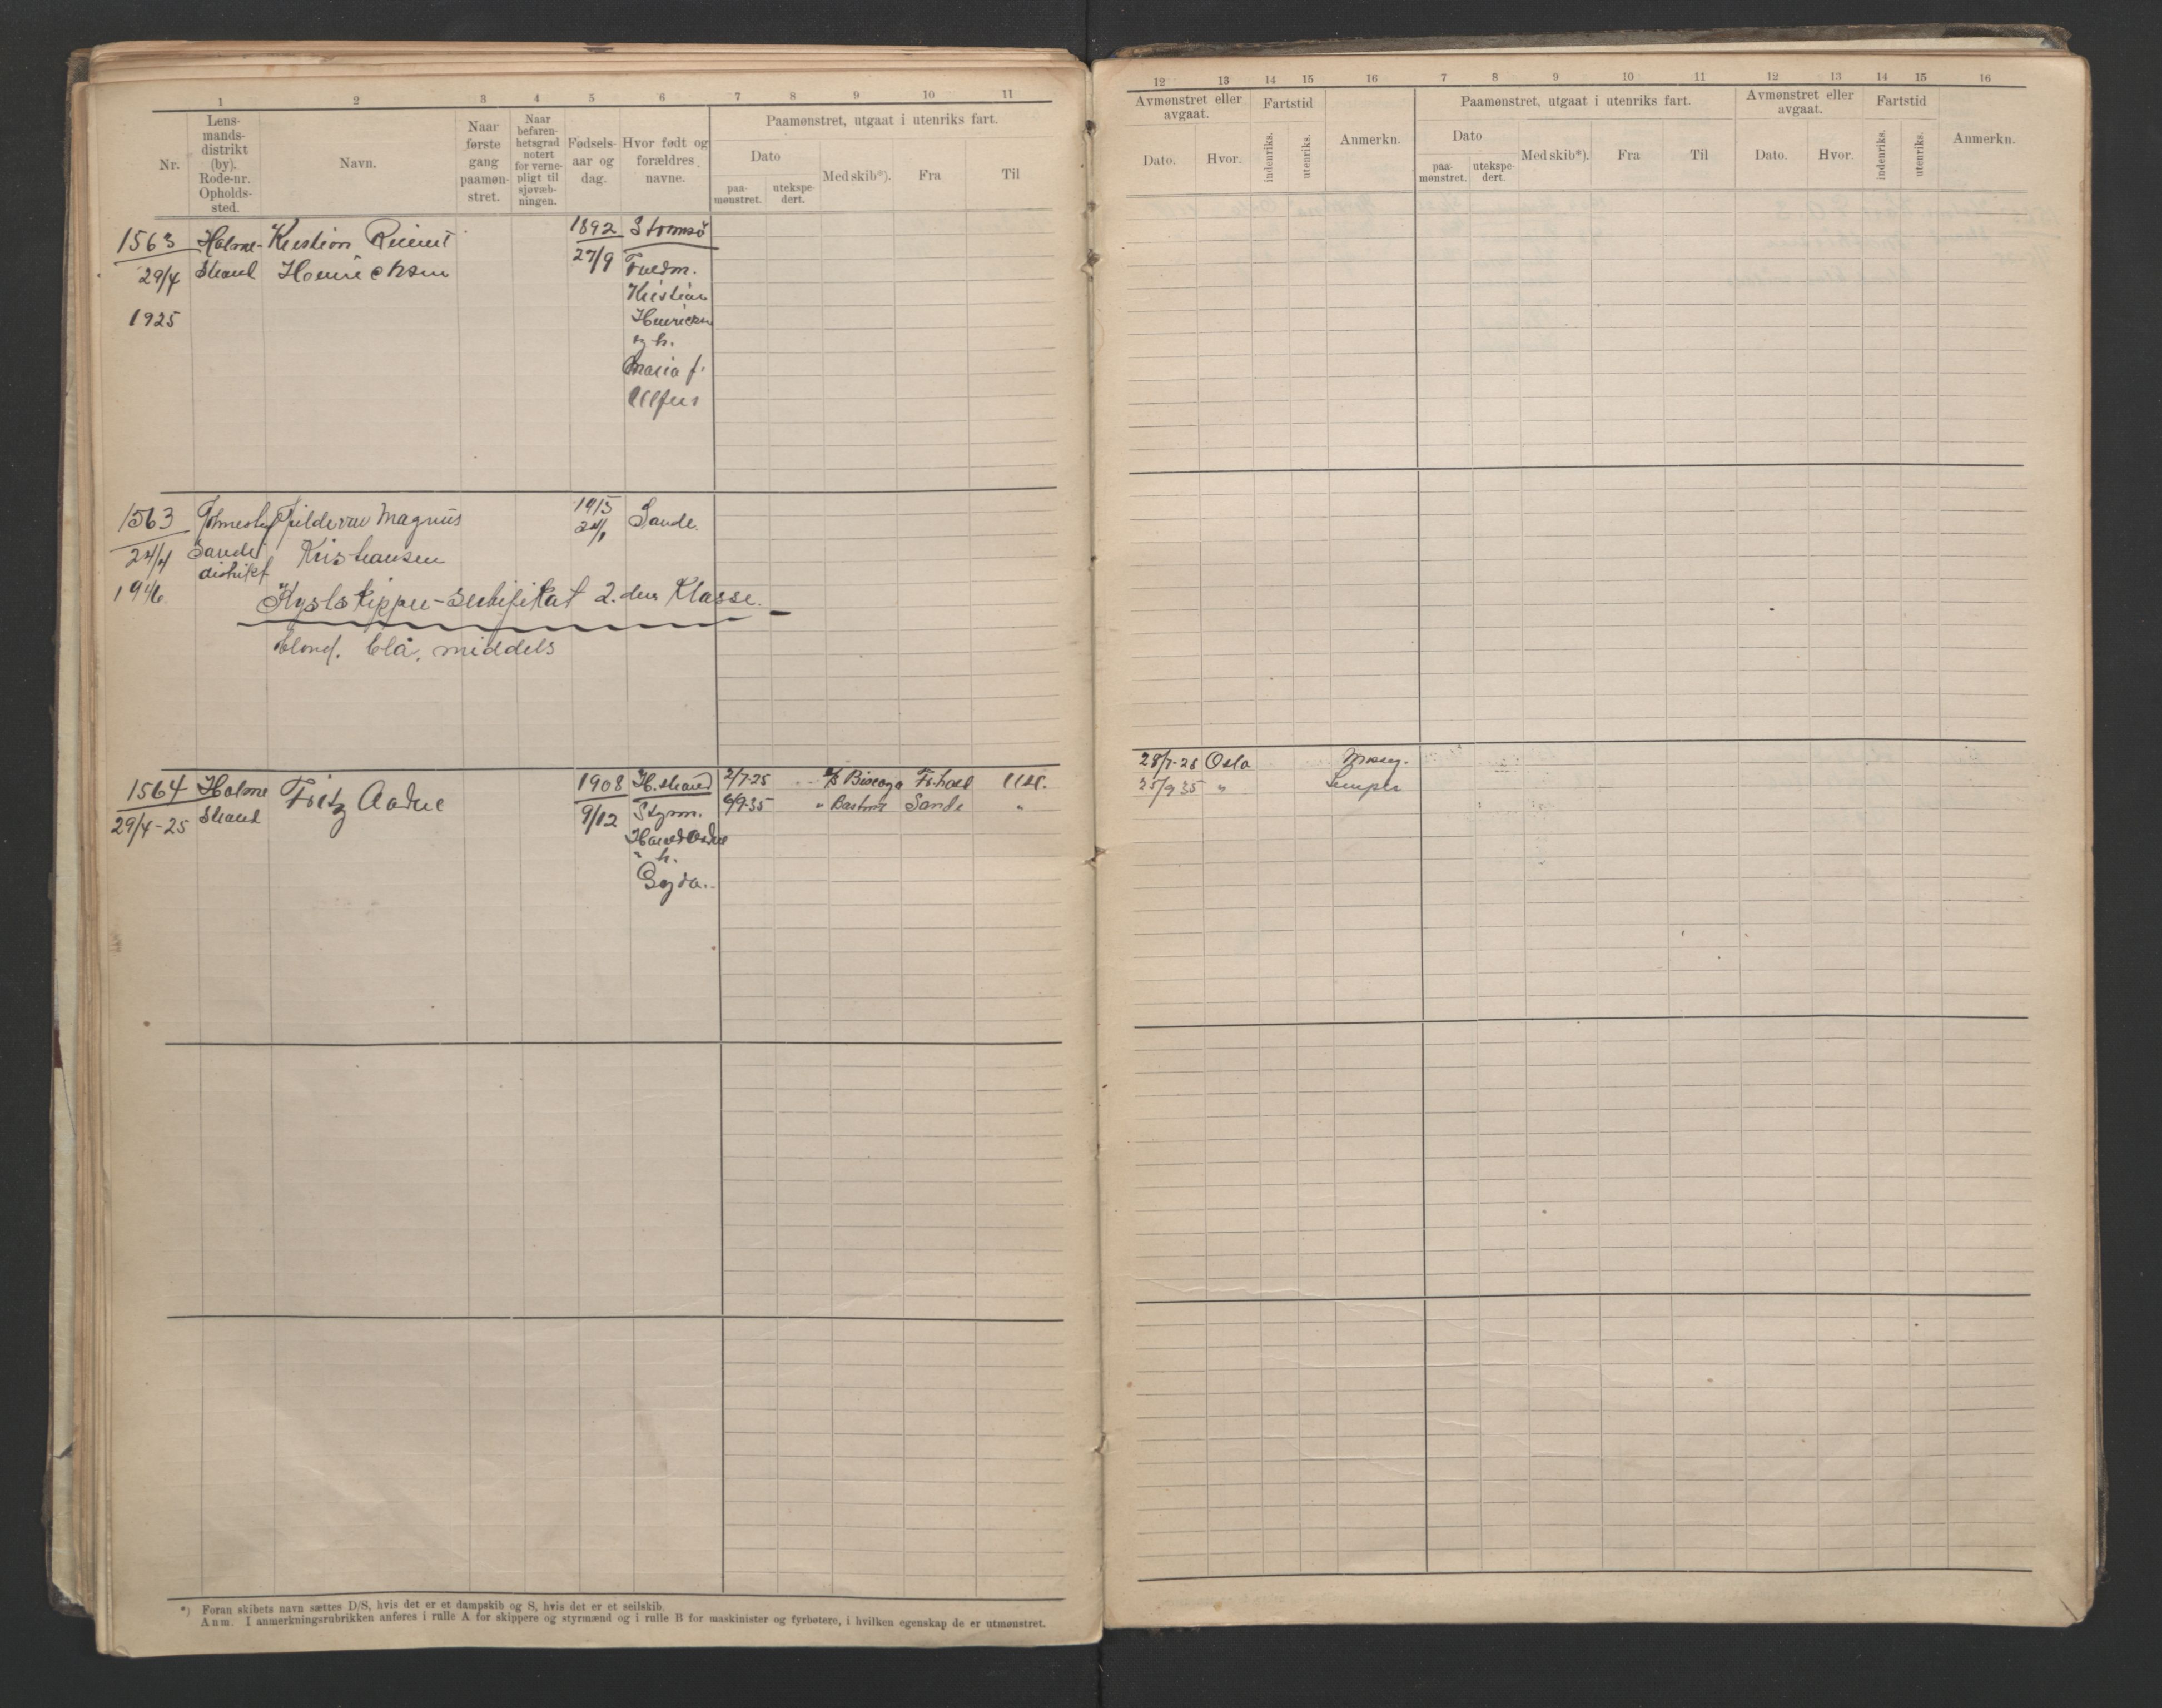 1 2 3 4 5 6 7 8 9 10 11
Nr.
Lens-
mands-
distrikt
(by).
Rode-nr.
Opholds-
sted.
Navn.
Naar
første
gang
paamøn-
stret.
Naar
befaren-
hetsgrad
notert
for verne-
pligt til
sjøvæb-
ningen.
Fødsels-
aar og
dag.
Hvor født og
forældres
navne.
Paamønstret, utgaat i utenriks fart.
Dato
paa-
mønstret.
utekspe-
dert.
Med skib*).
Fra
Til
1563 Holme- Kristian 1892 Strømsø
29/4 strand Henrichsen 27/9
1925
Kristian
Henrichsen
og h.
Maria f.
1563 Magnus 1915 Sande.
24/4 Sande Kristiansen 24/1
distrikt
1946.
Kystskipper-sertifikat 2. den Klasse.
blond. blå. middels
1564 Holme Fritz Aadne 1908 H.strand 2/7-25 Utl.
29/4-25 strand 9/12 Styrm. 6/9-35 " Bastant Sande "
Harald Aadne
" h.
*) Foran skibets navn sættes D/S, hvis det er et dampskib og S, hvis det er et seilskib.
Anm. I anmerkningsrubrikken anføres i rulle A for skippere og styrmænd og i rulle B for maskinister og fyrbøtere, i hvilken egenskap de er utmønstret.
12 13 14 15 16 7 8 9 10 11 12 13 14 15 16
Avmønstret eller
avgaat.
Dato.
Hvor.
Fartstid
indenriks.
utenriks.
Anmerkn.
Paamønstret, utgaat i utenriks fart.
Dato
paa-
mønstret.
utekspe-
dert.
Med skib*).
Fra
Til
Avmønstret eller
avgaat.
Dato.
Hvor.
Fartstid
indenriks.
utenriks.
Anmerkn.
28/7-25 Oslo
25/9 35 " Lemper